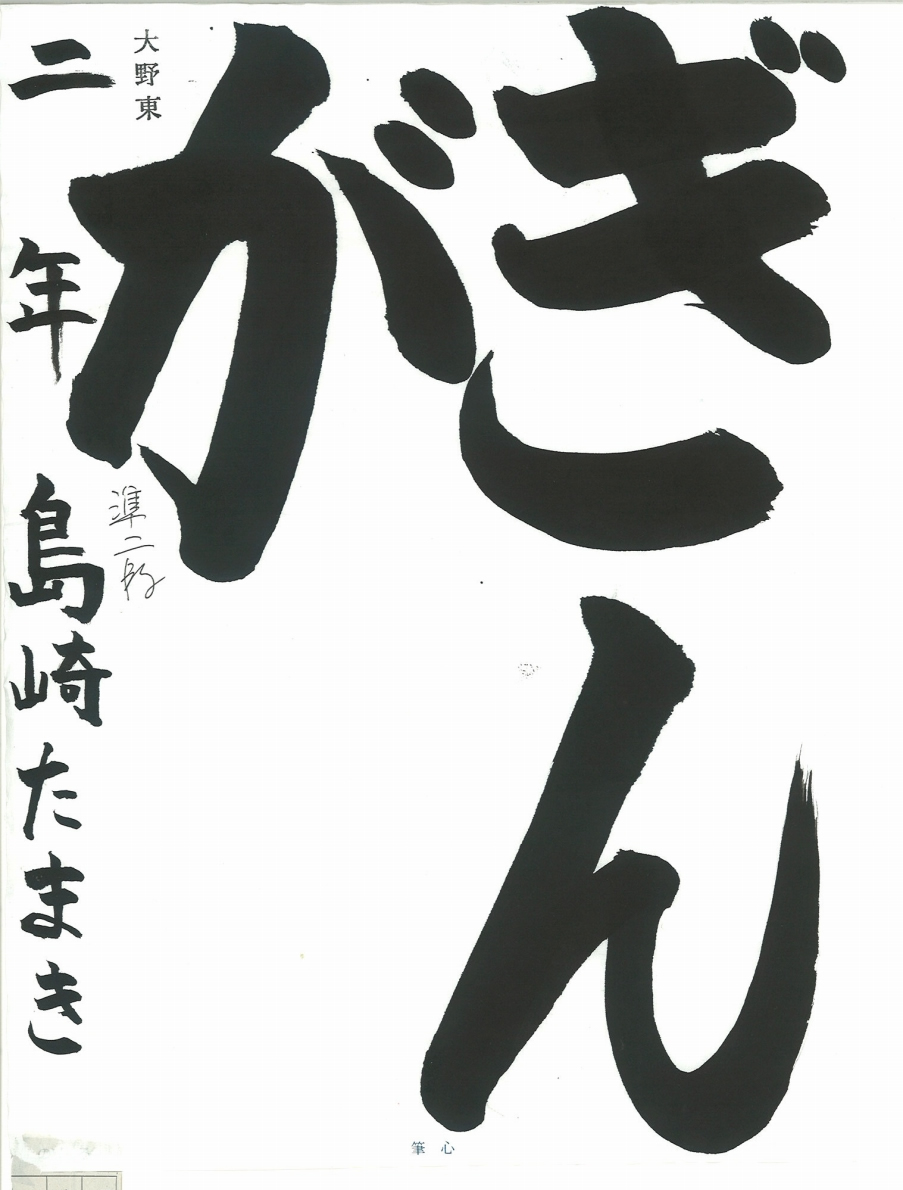 ぎん
が
大野東
二年 島崎たまき
準二段
筆心